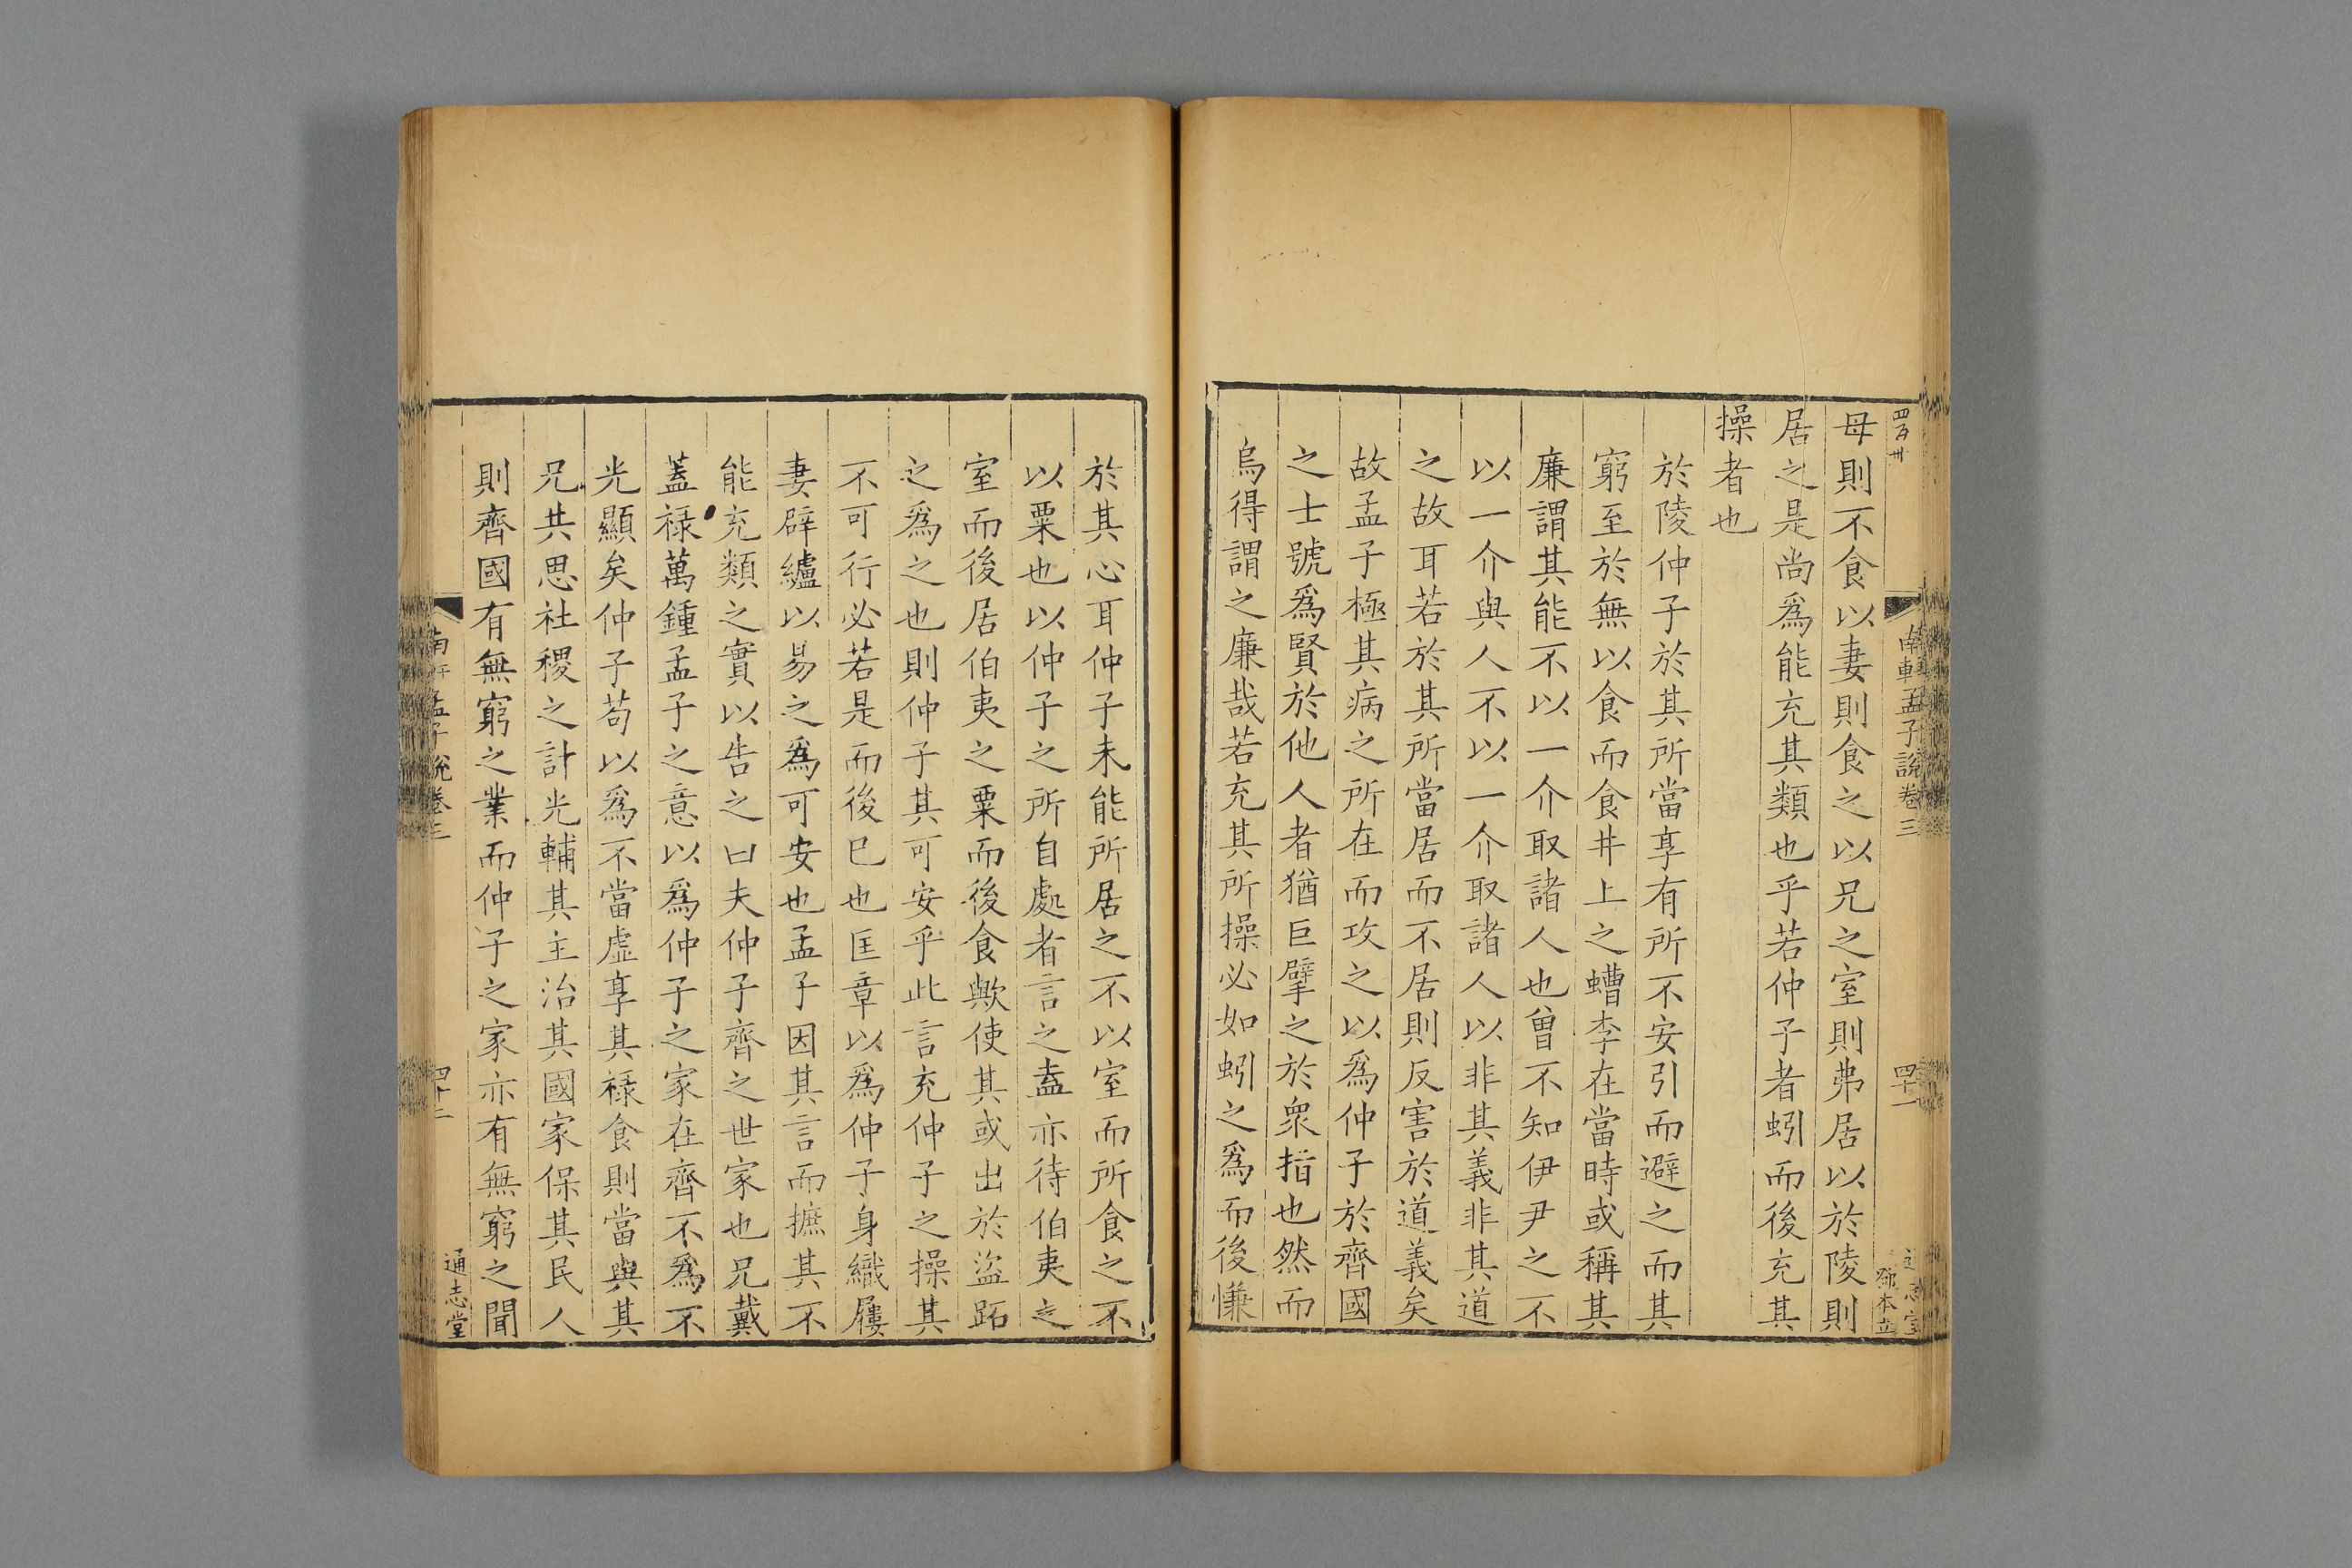 南軒孟子說卷三
四十一
母則不食以妻則食之以兄之室則弗居以於陵則
居之是尚爲能充其類也乎若仲子者蚓而後充其
操者也
於陵仲子於其所當享有所不安引而避之而其
窮至於無以食而食井上之螬李在當時或稱其
廉謂其能不以一介取諸人也曾不知伊尹之不
以一介與人不以一介取諸人以非其義非其道
之故耳若於其所當居而不居則反害於道義矣
故孟子極其病之所在而攻之以爲仲子於齊國
之士號爲賢於他人者猶巨擘之於衆指也然而
烏得謂之廉哉若充其所操必如蚓之爲而後慊
於其心耳仲子未能所居之不以室而所食之不
以粟也以仲子之所自處者言之盍亦待伯夷之
室而後居伯夷之粟而後食歟使其或出於盜跖
之爲之也則仲子其可安乎此言充仲子之操其
不可行必若是而後已也匡章以爲仲子身織屨
妻辟纑以易之爲可安也孟子因其言而摭其不
能充類之實以告之曰夫仲子齊之世家也兄戴
蓋祿萬鍾孟子之意以爲仲子之家在齊不爲不
光顯矣仲子苟以爲不當虛享其祿食則當與其
兄共思社稷之計光輔其主治其國家保其民人
則齊國有無窮之業而仲子之家亦有無窮之聞
通志堂